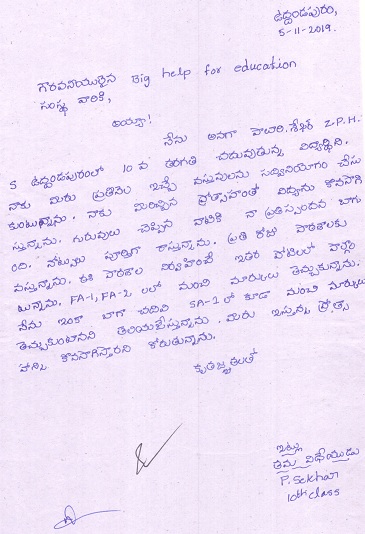 ఉద్దండపురం,
5-11-2019.
గౌరవనీయులైన Big help for education
సంస్థ వారికి,
అయ్యా!
నేను అనగా పాలారి. శేఖర్ Z.P.H.
S ఉద్దండపురంలో 10 వ తరగతి చదువుతున్న విద్యార్థిని.
నాకు మీరు ప్రతినెల ఇచ్చే వస్తువులను సద్వినియోగం చేసు
కుంటున్నాను. నాకు మీరిచ్చిన ప్రోత్సాహంతో విద్యను కొనసాగి
స్తున్నాను. గురువులు చెప్పిన వాటికి నా ప్రతిస్పందన బాగు
ంది. నోట్సులు పూర్తిగా రాస్తున్నాను. ప్రతి రోజూ పాఠశాలకు
వస్తున్నాను. ఈ పాఠశాల నిర్వహించే ఇతర పోటీలలో పాల్గొం
టున్నాను. FA-1, FA-2 లలో మంచి మార్కులు తెచ్చుకున్నాను.
నేను ఇంకా బాగా చదివి SA-1 లో కూడా మంచి మార్కులు
తెచ్చుకుంటానని తెలియజేస్తున్నాను. మీరు ఇస్తున్న ప్రోత్సా
హాన్ని కొనసాగిస్తారని కోరుతున్నాను.
కృతజ్ఞతలతో
ఇట్లు
తమ విధేయుడు
P. Sekhar
10th class